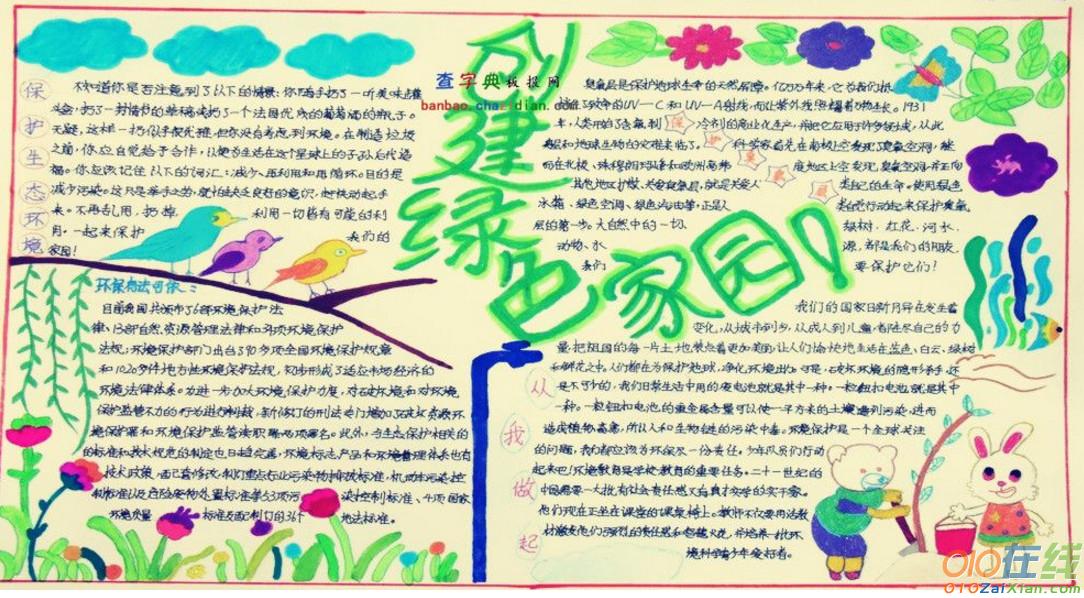 创建绿色家园!
查字典板报网
banbao.chazidian.com
保护生态环境
不知道你是否注意到了以下的情景:你随手扔了一听美味罐
头盒,扔了一封情节的草稿或扔了一个法国优质的葡萄酒的瓶子。
无疑,这样一扔似乎很光雅,但你没有考虑到环境。在制造垃圾
之前,你应自觉给予合作,以便为生活在这个星球上的子孙后代造
福。你应该记住以下的词汇:减少、再利用和再循环。目的是
减少污染。这只是举手之劳,就怕缺乏良好的意识,赶快动起手
来。不再乱用,扔掉 利用一切皆有可能的利
用。一起来保护 我们的
家园!
环保有法可依:
目前我国共颁布了6部环境保护法
律,13部自然资源管理法律和34项环境保护
法规;环境保护部门出台了90多项全国环境保护规章
和1020多件地方性环境保护法规,初步形成了适应市场经济的
环境法律体系。为进一步加大环境保护力度,对破坏环境和对环境
保护监管不力的行为进行制裁,新修订的刑法专门增加了破坏资源环
境保护罪和环境保护监管渎职罪两项罪名。此外,与生态保护相关的
的标准和技术规范的制定也日趋完善,环境标志产品和环境管理体系也有
技术政策
制标准以及危险废物处置标准等53项污 染控制标准、4项国家
环境质量 标准及配制订的 地法标准。
臭氧层是保护地球生命的天然屏障。亿万万年来,它为我们抵
挡了致命的UV-C和UV-A射线,而让紫外线照耀着万物生长。1931
年,人类开始了含氟利 冷剂的商业化生产,并把它应用于许多领域,从此
臭层和地球生物的灾难来临了。 科学家首先在南极上空发现了臭氧空洞,继
而在北极、珠穆朗玛峰和欧洲高纬 度地区上空发现,臭氧空洞,并正向
其他地区扩散,关爱臭氧层,就是关爱人 类自己的生命。使用绿色
冰箱、绿色空调、绿色汽油等,正是人 类自觉行动起来保护臭氧
层的第一步。大自然中的一切, 绿树、红花、河水、
动物、水 源,都是我们的朋友,
我们 要保护它们!
从我做起
我们的国家日新月异在发生着
变化,从城市到乡,从成人到儿童,都在尽自己的力
量,把祖国的每一片土地装点着更加美丽,让人们愉快地生活在蓝色、白云、绿树
和鲜花之中,人们都在为保护地球,净化环境出力。可是,破坏环境的隐形杀手,还
是不可少的,我们日常生活中用的废电池就是其中一种。一粒纽扣电池,就是其中
一种。一粒纽扣电池的重金属含量可以使一平方米的土壤遭到污染,进而
造成植物有毒,所以人和生物链的污染中毒。环境保护是一个全球关注
的问题,我们都应该为环保尽一份责任。少年队员们行动
起来吧!环境教育是学校教育的重要任务。二十一世纪的
中国需要一大批有社会责任感又有真才实学的实干家。
他们现在正坐在课堂的课桌椅上。教师不仅要用话教
材激发他们强烈的责任感和智慧火花,并培养一批环
境科学青少年爱好者。
010在线
010ZaiXian.com